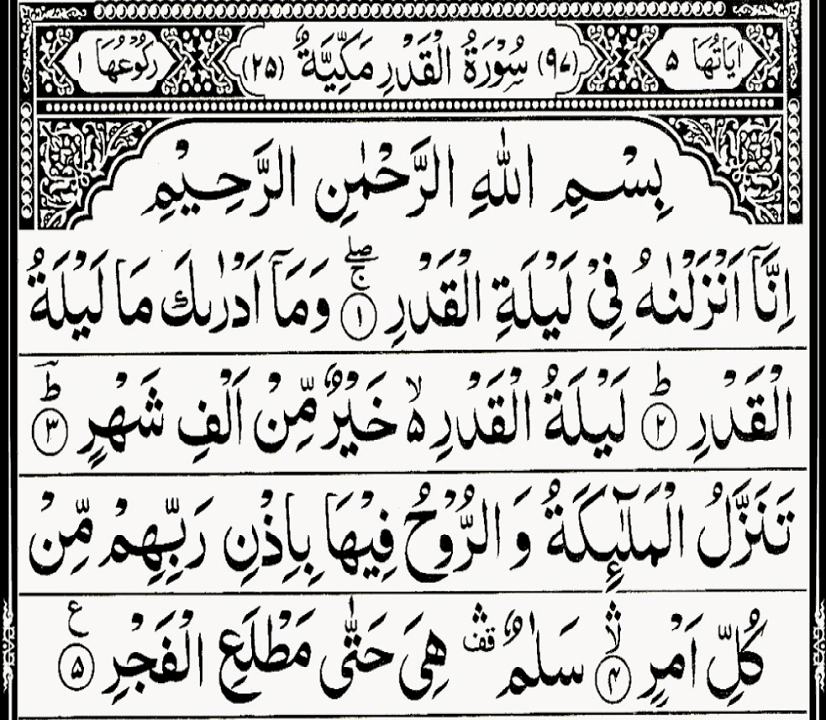 اٰيَاتُهَا ٥ (٩٧) سُوْرَةُ الْقَدْرِ مَكِّيَّةٌ (٢٥) رُكُوْعُهَا ١
بِسْمِ اللّٰهِ الرَّحْمٰنِ الرَّحِيْمِ
اِنَّاۤ اَنْزَلْنٰهُ فِيْ لَيْلَةِ الْقَدْرِ ۖۚ ﴿١﴾ وَمَاۤ اَدْرٰىكَ مَا لَيْلَةُ
الْقَدْرِ ؕ ﴿٢﴾ لَيْلَةُ الْقَدْرِ ۙ۬ خَيْرٌ مِّنْ اَلْفِ شَهْرٍ ؕ ﴿٣﴾
تَنَزَّلُ الْمَلٰٓئِكَةُ وَ الرُّوْحُ فِيْهَا بِاِذْنِ رَبِّهِمْ مِّنْ
كُلِّ اَمْرٍ ۛۙ ﴿۴﴾ سَلٰمٌ قف ۛ هِيَ حَتّٰى مَطْلَعِ الْفَجْرِ ﴿٥﴾ ع